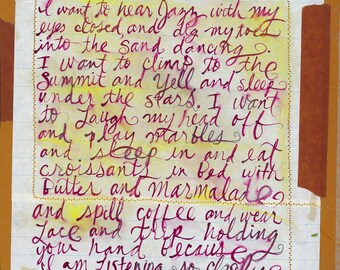 I want to hear Jazz with my
eyes closed, and dig my toes
into the sand dancing.
I want to climb to the
Summit and yell and sleep
under the stars. I want
to laugh my head off
and play marbles
and sleep in and eat
croissants in bed with
butter and marmalade
and spill coffee and wear
lace and trip holding
your hand because
I am listening so